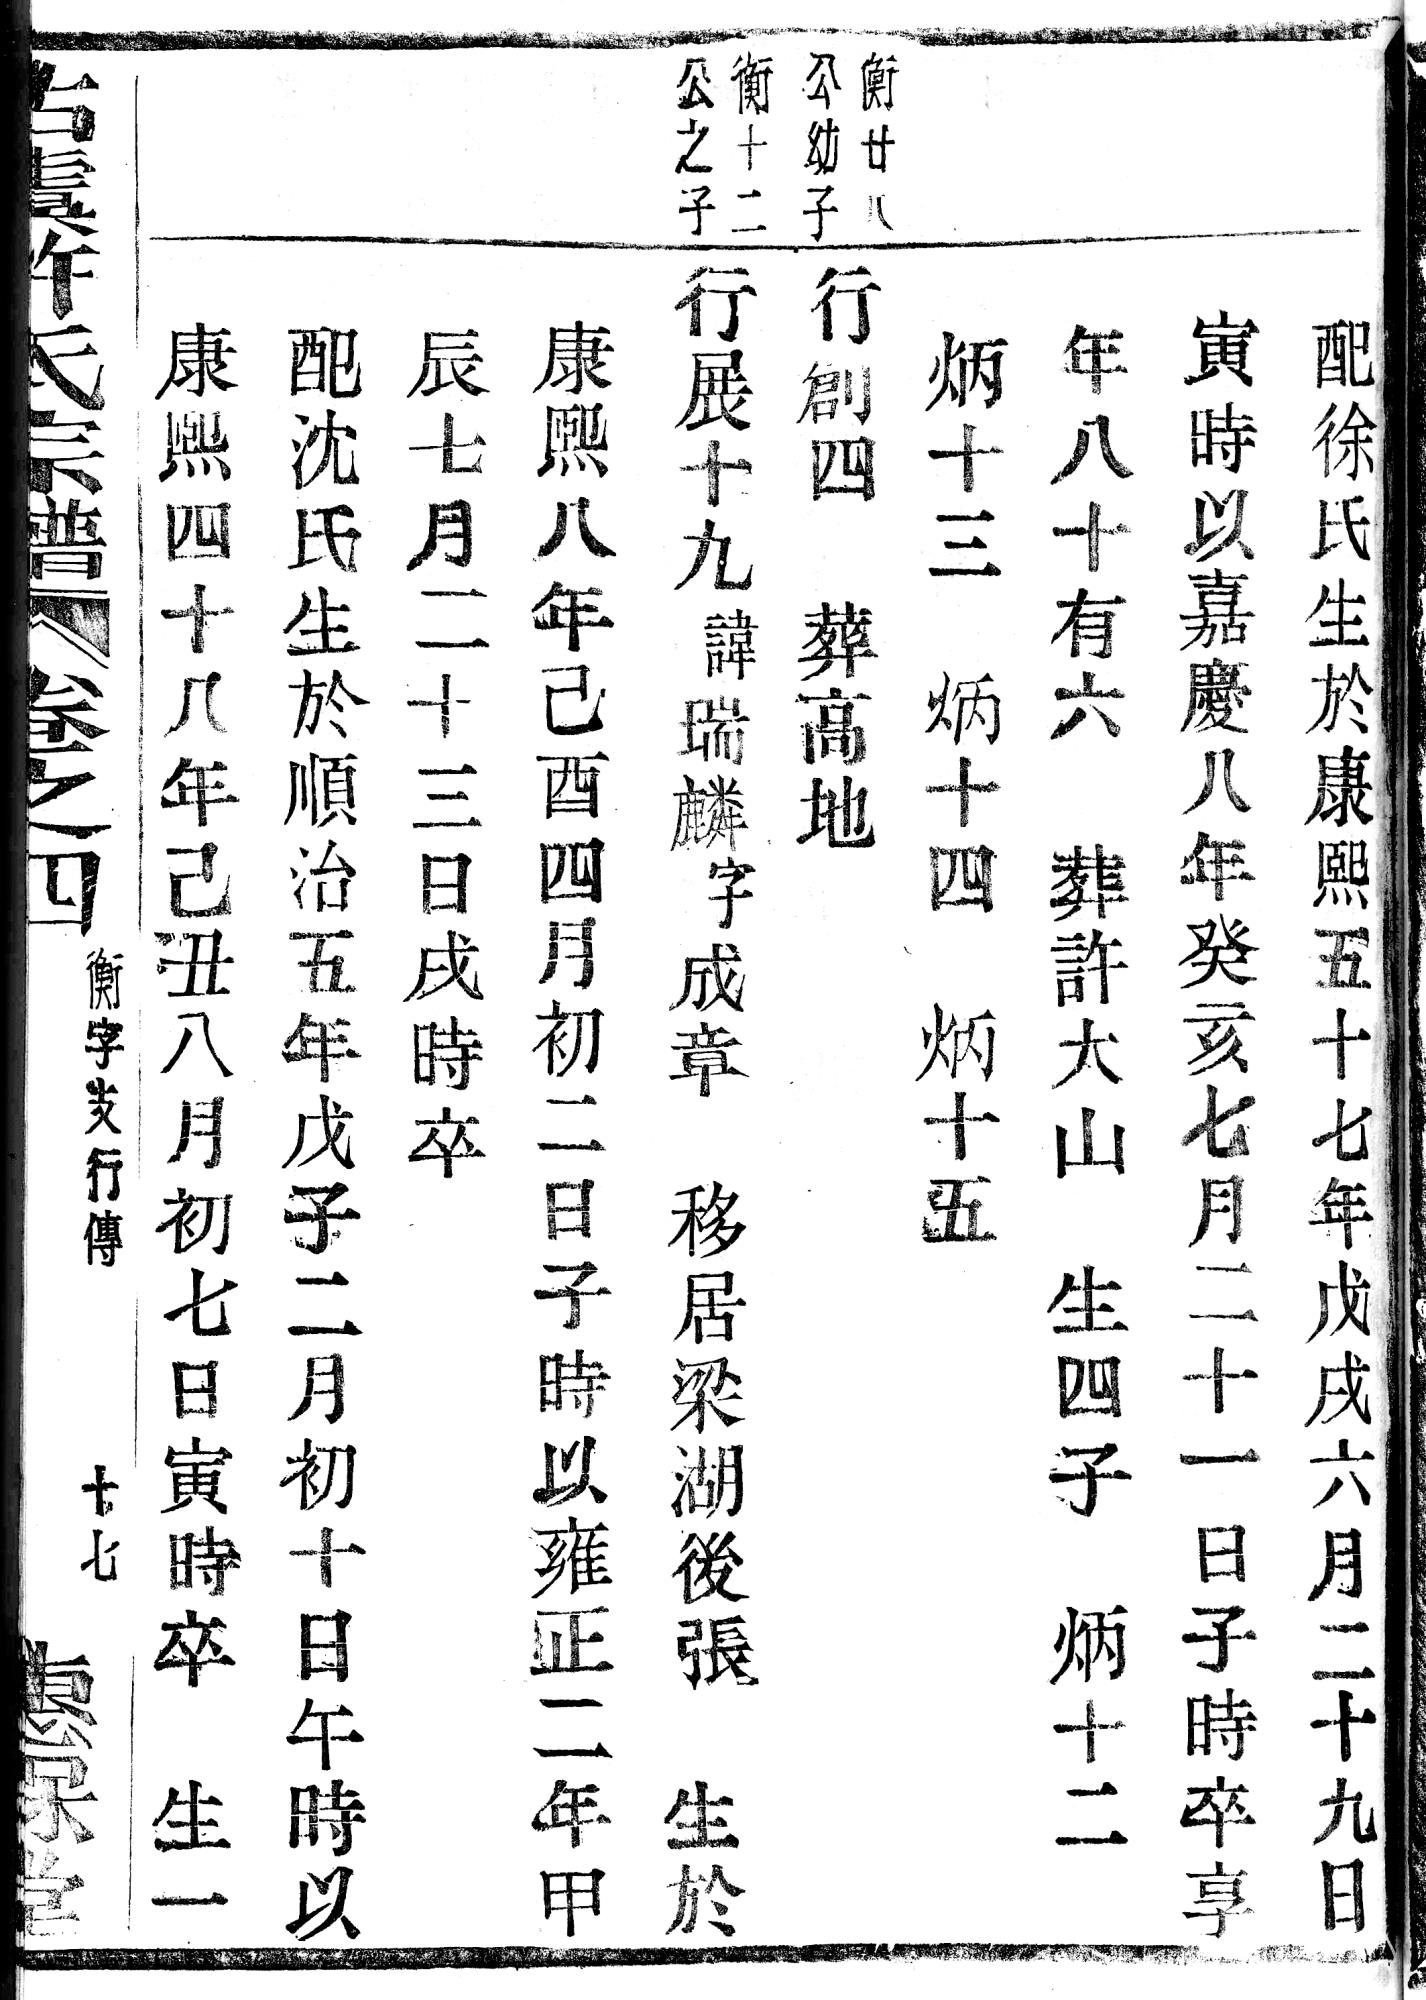 配徐氏生於康熙五十七年戊戌六月二十九日
寅時以嘉慶八年癸亥七月二十一日子時卒享
年八十有六　葬許大山　生四子　炳十二
炳十三　炳十四　炳十五
衡廿八
公幼子
行創四　葬高地
衡十二
公之子
行展十九諱瑞麟字成章　移居梁湖後張　生於
康熙八年己酉四月初二日子時以雍正二年甲
辰七月二十三日戌時卒
配沈氏生於順治五年戊子二月初十日午時以
康熙四十八年己丑八月初七日寅時卒　生一
古虞許氏宗譜　卷之四
衡字支行傳
十七